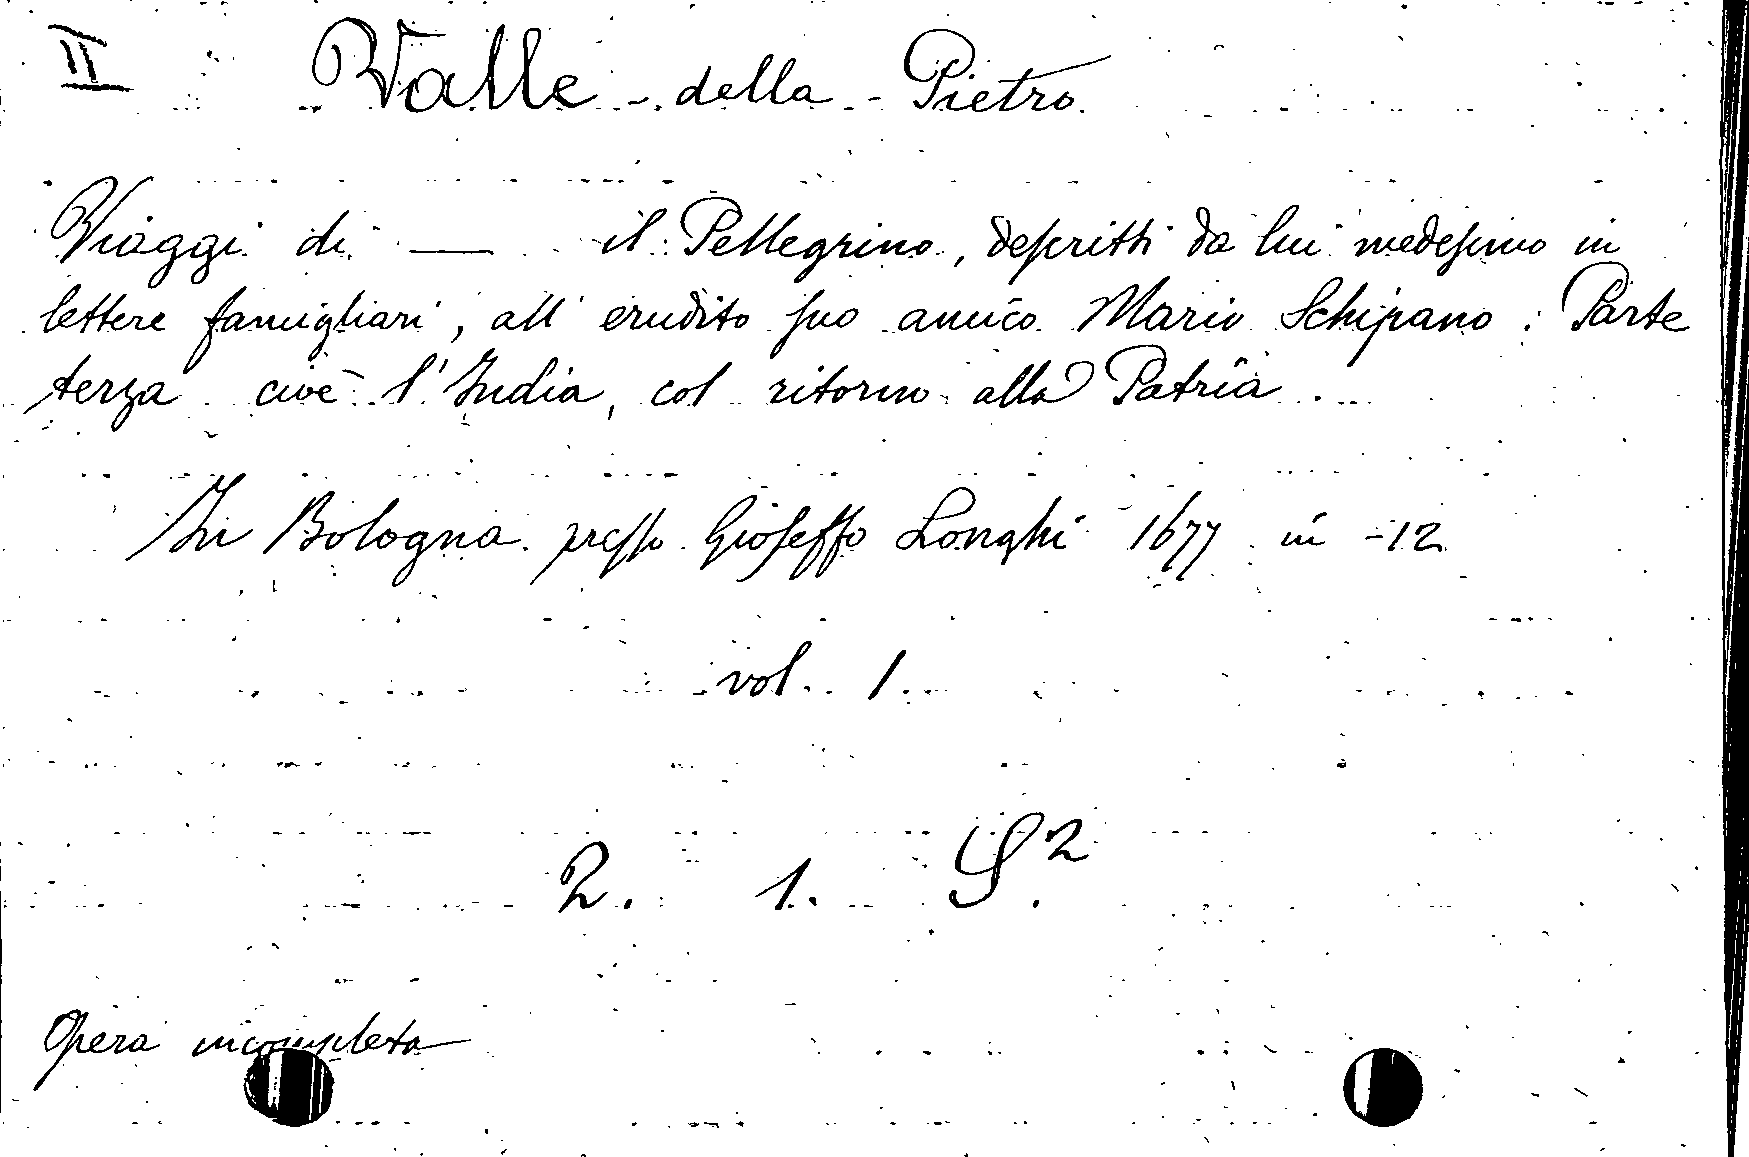 II Valle della Pietro
Viaggi di — il Pellegrino, deſcritti da lui medeſimo in
lettere famigliari, all' erudito ſuo amico Mario Schipano. Parte
terza cioè l'India, col ritorno alla Patria.
In Bologna preſſo Gioſeffo Longhi 1677 in -12
vol. 1.
2. 1. S.²
Opera incompleta